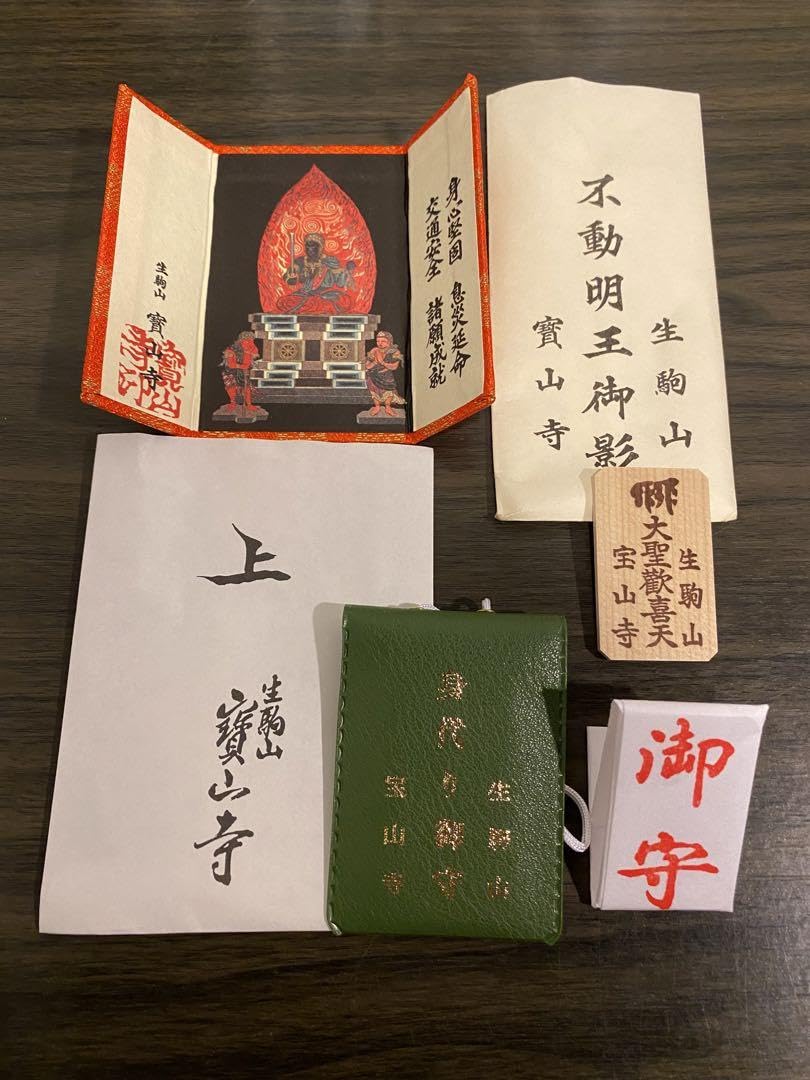 身心堅固　息災延命
交通安全　諸願成就
生駒山　寳山寺
寳山寺印
生駒山
不動明王御影
寳山寺
生駒山
大聖歡喜天
宝山寺
上
生駒山
寳山寺
生駒山
身代り御守
宝山寺
御守